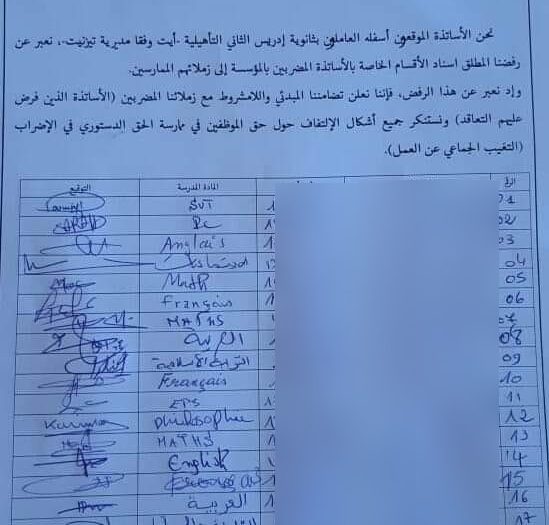 نحن الأساتذة الموقعون أسفله العاملون بثانوية إدريس الثاني التأهيلية -أيت وفقا مديرية تيزنيت-، نعبر عن
رفضنا المطلق اسناد الأقسام الخاصة بالأساتذة المضربين بالمؤسسة إلى زملائهم الممارسين.
وإد نعبر عن هذا الرفض، فإننا نعلن تضامننا المبدئي واللامشروط مع زملائنا المضربين (الأساتذة الذين فرض
عليهم التعاقد) ونستنكر جميع أشكال الإلتفاف حول حق الموظفين في ممارسة الحق الدستوري في الإضراب
(التغيب الجماعي عن العمل).
المادة المدرسة التوقيع
01 SVT
02 Pc
03 Anglais
04
05 Math
06 Français
07 MATHS
08 العربية
09 التربية الإسلامية
10 Français
11 EPS
12 philosophie
13 MATHS
14 English
15
16 العربية
17